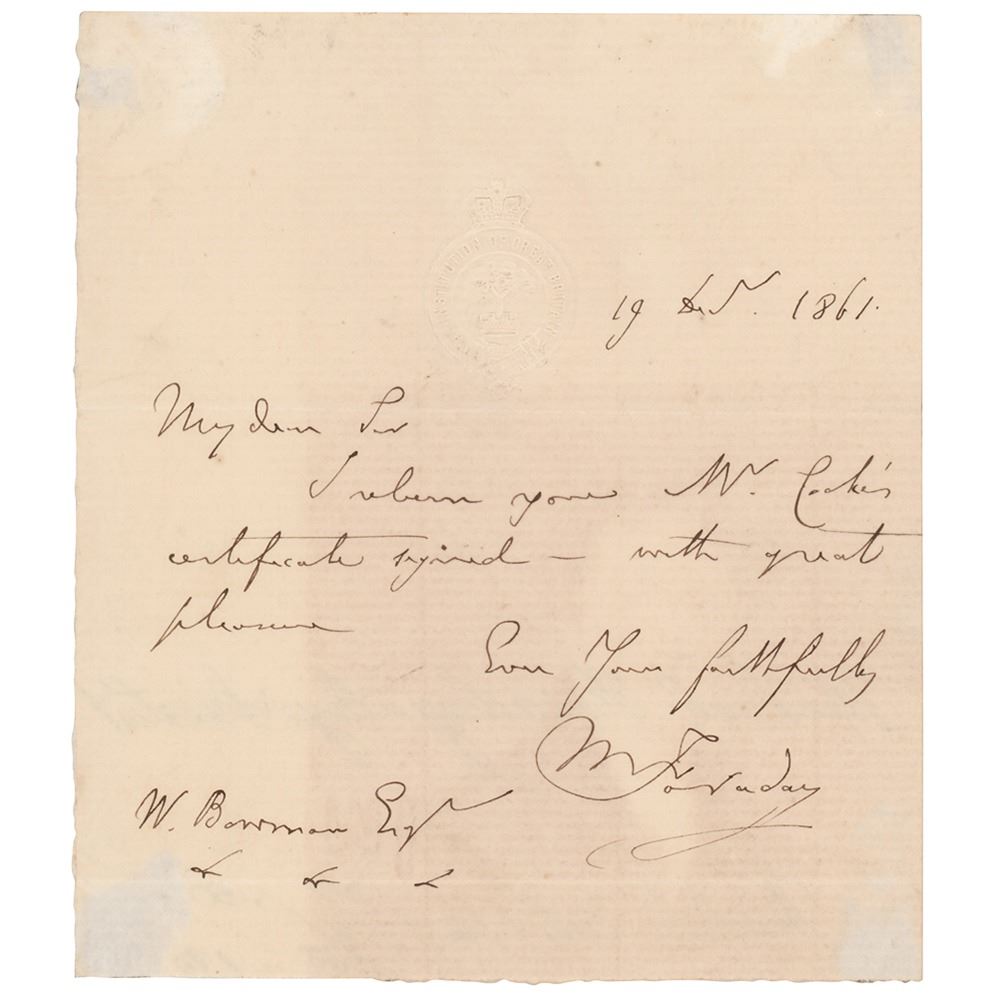 INSTITUTION OF GREAT BRITAIN
19 Decr. 1861.
My dear Sir
I return your Mr. Cooke's
certificate signed – with great
pleasure
Ever Yours faithfully
M Faraday
W. Bowman Esqr
&c &c &c